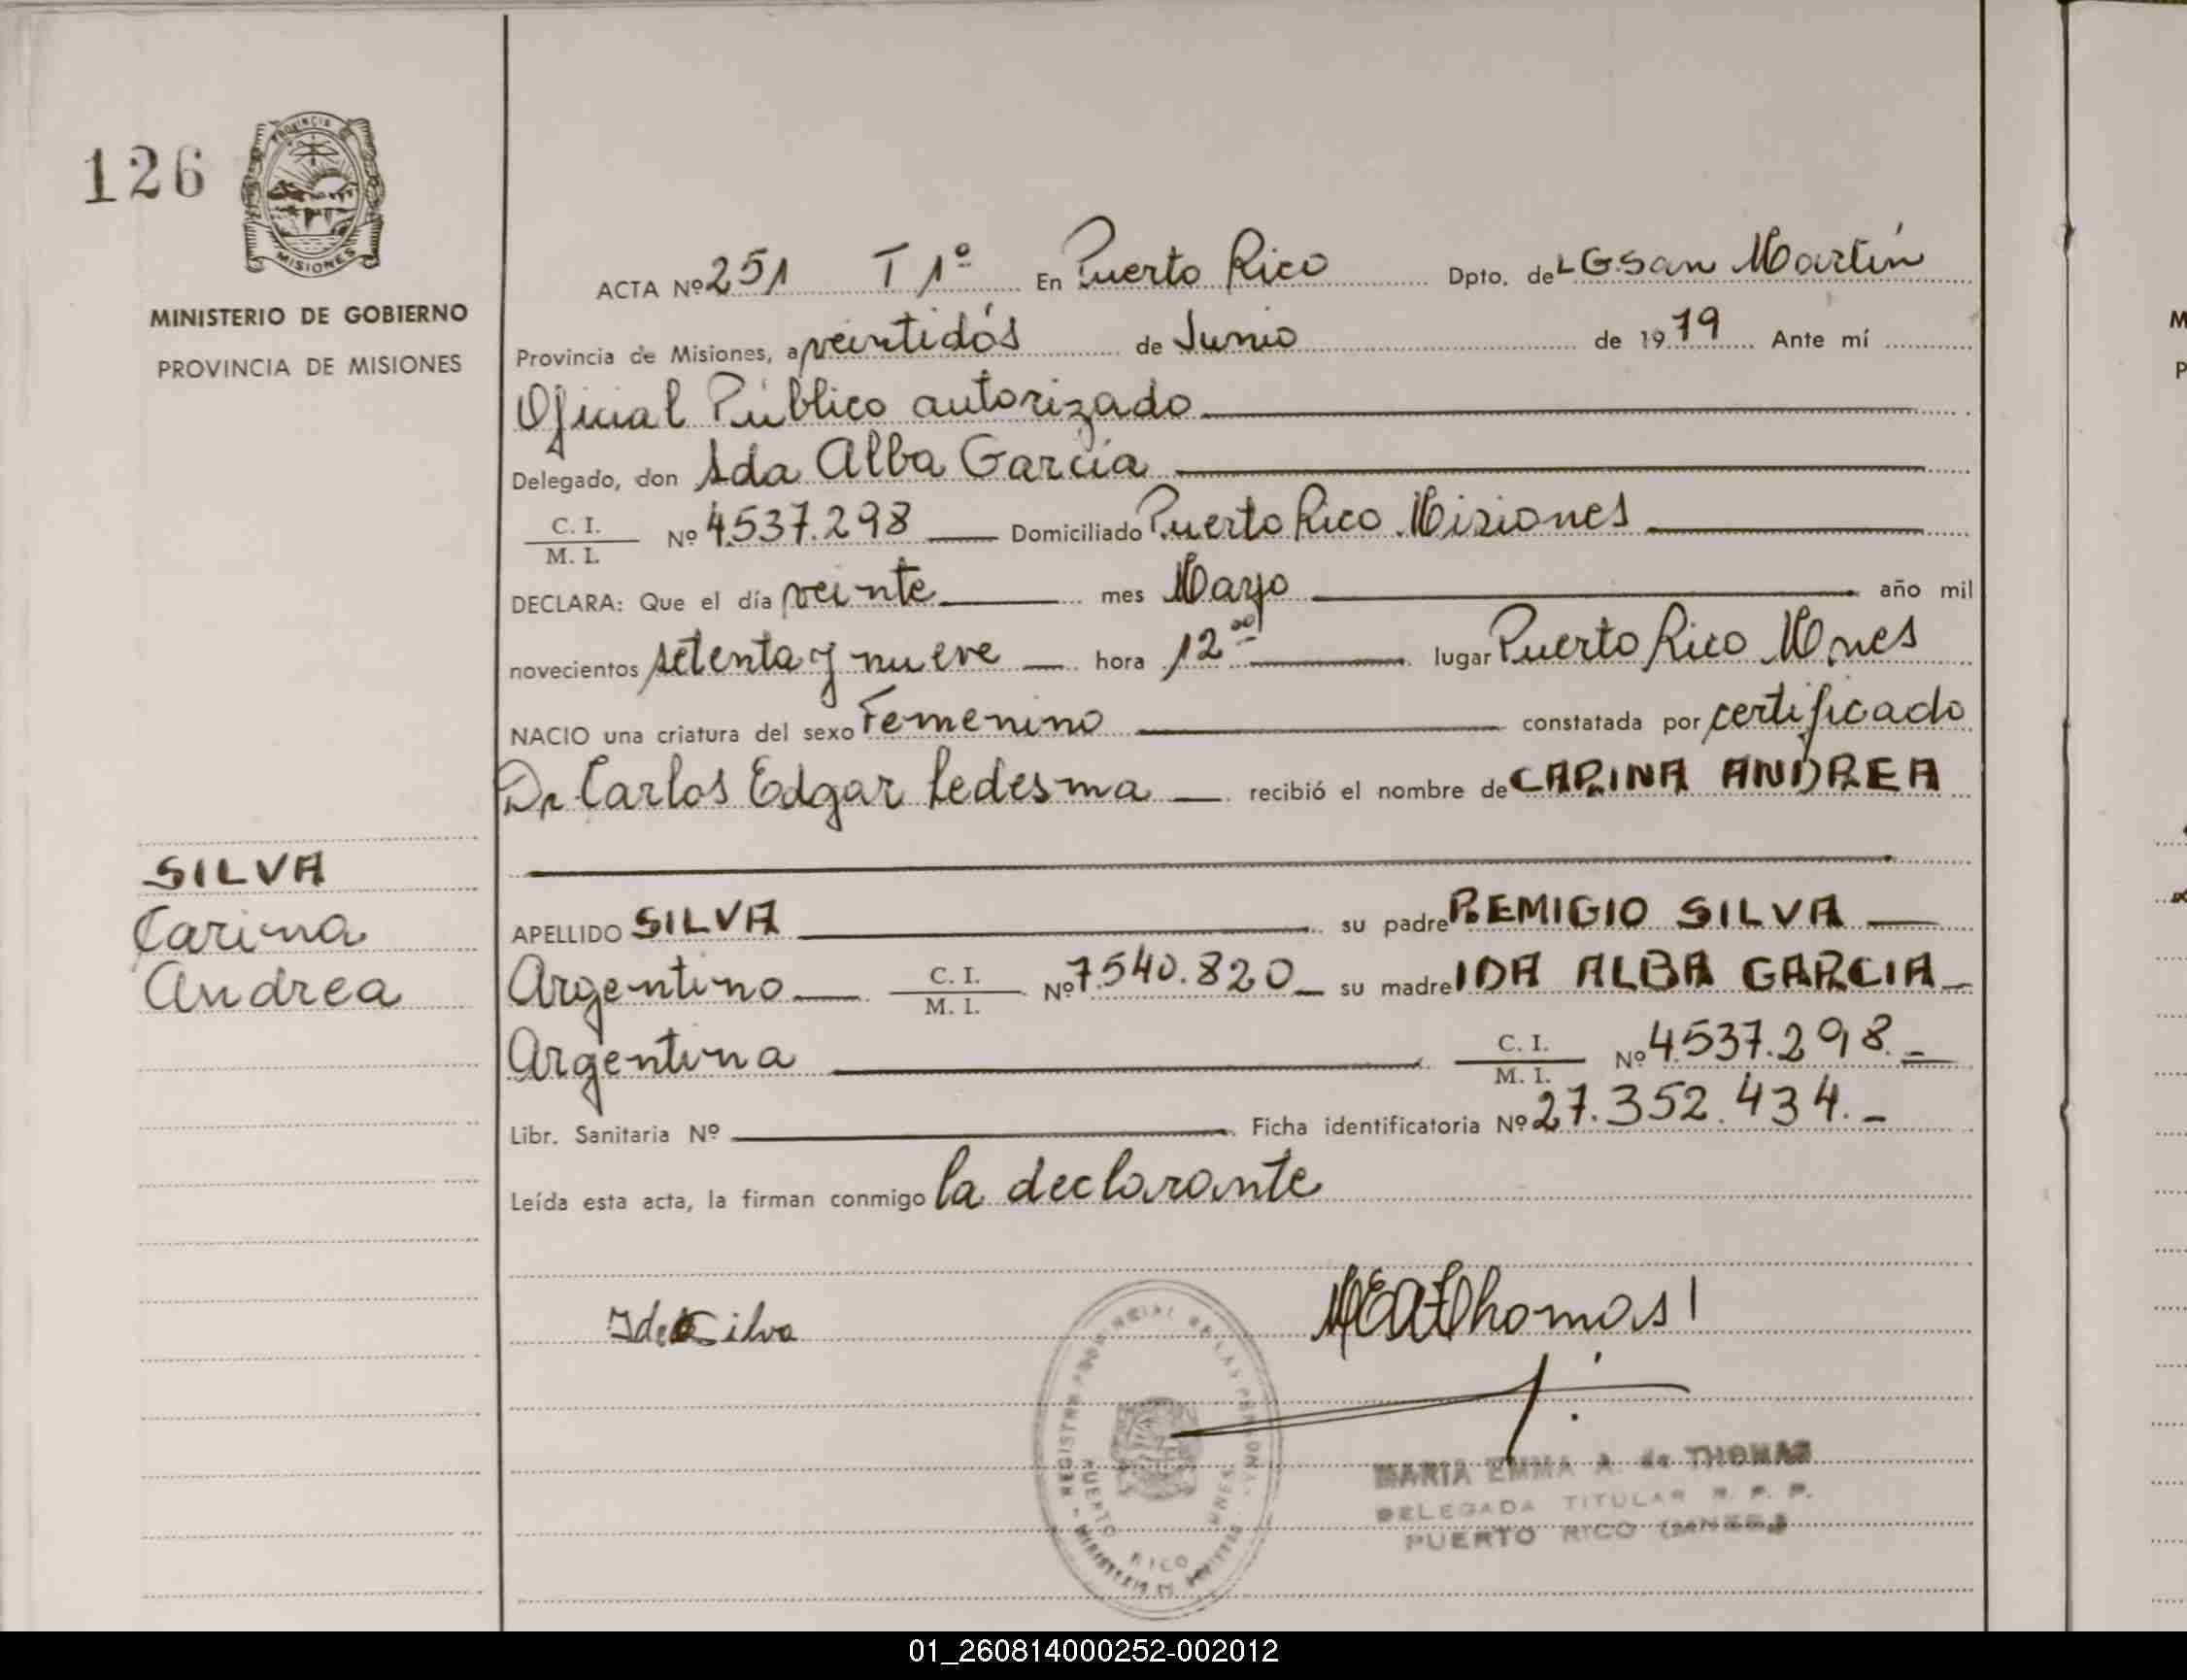 126
PROVINCIA
MISIONES
MINISTERIO DE GOBIERNO
PROVINCIA DE MISIONES
SILVA
Carina
Andrea
ACTA Nº 251 T 1º En Puerto Rico Dpto. de LG.San Martín
Provincia de Misiones, a veintidós de Junio de 1979 Ante mí
Oficial Público autorizado
Delegado, don Ida Alba García
C. I. / M. I. Nº 4.537.298 Domiciliado Puerto Rico Misiones
DECLARA: Que el día veinte mes Mayo año mil
novecientos setenta y nueve hora 12 00 lugar Puerto Rico Mnes
NACIO una criatura del sexo Femenino constatada por certificado
Dr. Carlos Edgar Ledesma recibió el nombre de CARINA ANDREA
APELLIDO SILVA su padre REMIGIO SILVA
Argentino C. I. / M. I. Nº 7.540.820 su madre IDA ALBA GARCIA
Argentina C. I. / M. I. Nº 4.537.298.-
Libr. Sanitaria Nº Ficha identificatoria Nº 27.352.434.-
Leída esta acta, la firman conmigo la declarante
Silva
Thomas
REGISTRO PROVINCIAL DE LAS PERSONAS
PUERTO RICO MNES
MINISTERIO DE
MARIA EMMA A. de THOMAS
DELEGADA TITULAR R. P. P.
PUERTO RICO (MNES.)
01_260814000252-002012